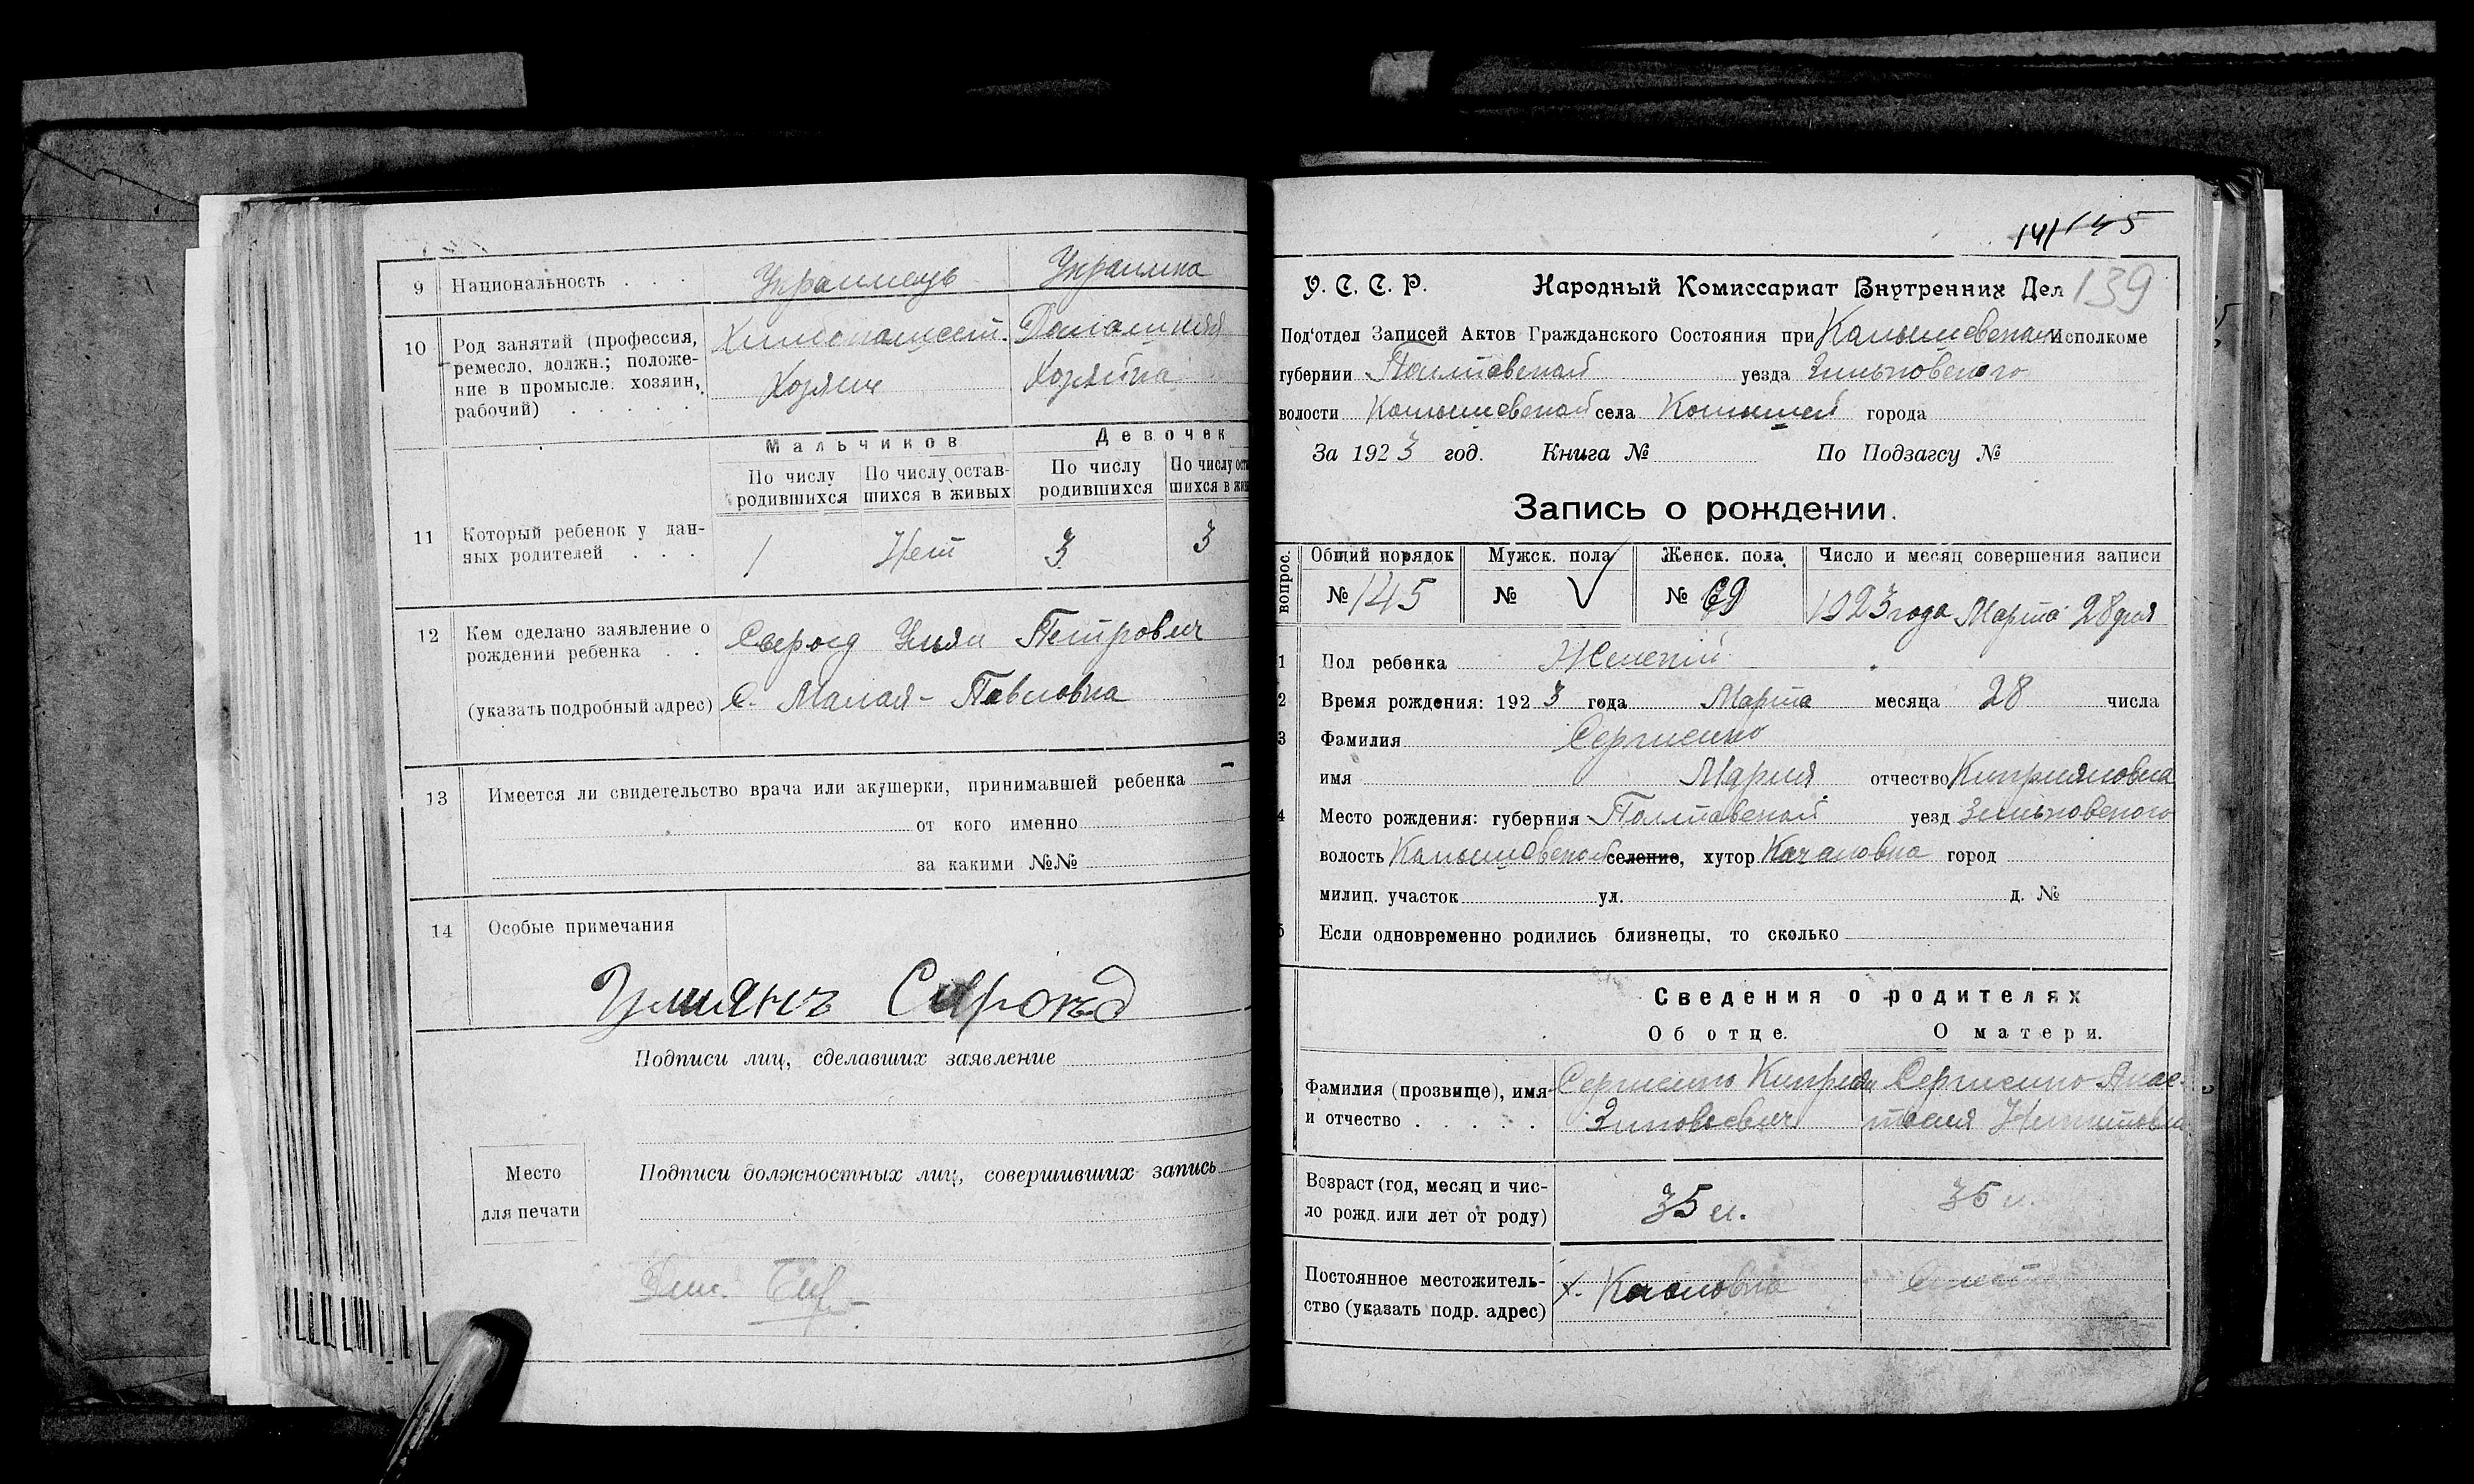 9 Национальность . . . Украинець Украинка
10 Род занятий (профессия, ремесло, должн.; положе-
ние в промысле: хозяин, рабочий) . . . . . Хлебопашест. Домашняя
Хозяин Хозяйка
Мальчиков Девочек
По числу родившихся По числу остав-
шихся в живых По числу родившихся По числу
шихся в
11 Который ребенок у дан-
ных родителей . . . 1 Нет 3 3
12 Кем сделано заявление о
рождении ребенка . . Петрович
(указать подробный адрес) С. Малая-Павловка
13 Имеется ли свидетельство врача или акушерки, принимавшей ребенка —
от кого именно
за какими №№
14 Особые примечания
Подписи лиц, сделавших заявление
Место
для печати
Подписи должностных лиц, совершивших запись
141 145
У. С. С. Р. Народный Комиссариат Внутренних Дел 139
Под'отдел Записей Актов Гражданского Состояния при Камышевском Исполкоме
губернии Полтавской уезда Зиньковского
волости Камышевской села Камышей города
За 1923 год. Книга № По Подзагсу №
Запись о рождении.
вопрос. Общий порядок Мужск. пола Женск. пола Число и месяц совершения записи
№ 145 № V № 69 1923 года Марта 28 дня
1 Пол ребенка Женский
2 Время рождения: 1923 года Марта месяца 28 числа
3 Фамилия Сергиенко
имя Мария отчество Киприяновна
4 Место рождения: губерния Полтавской уезд Зиньковского
волость Камышевской селение, хутор Качановка город
милиц. участок ул. д. №
5 Если одновременно родились близнецы, то сколько
Сведения о родителях
Об отце. О матери.
Фамилия (прозвище), имя Сергиенко Киприян Сергиенко Анас-
и отчество . . . . . Зиновьевич тасия Никитовна
Возраст (год, месяц и чис-
ло рожд. или лет от роду) 35 л. 35 л.
Постоянное местожитель-
ство (указать подр. адрес) х.